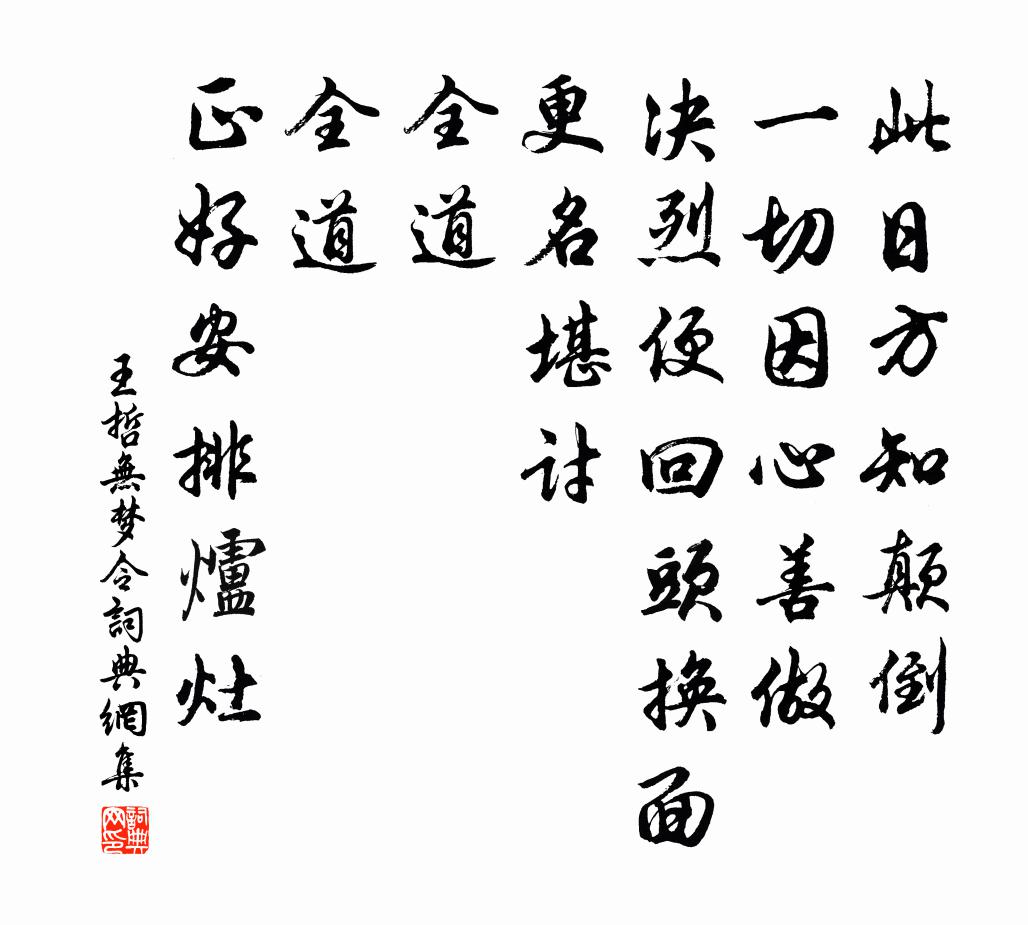 此日方知颠倒
一切因心善做
决烈便回頭換面
更名堪討
全道
全道
正好安排爐灶
王哲無梦令詞典網集
詞典网印